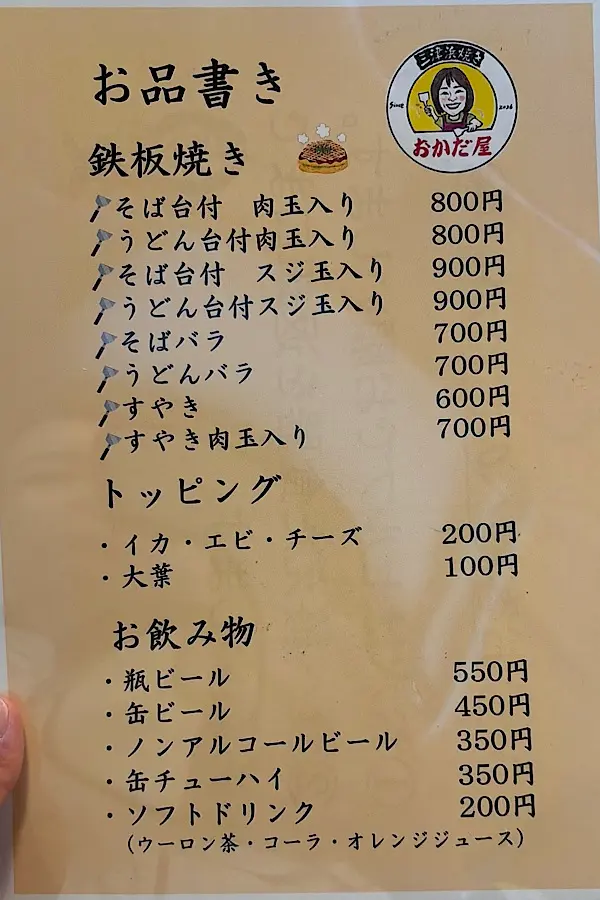 お品書き
三津浜焼き
Since 2016
おかだ屋
鉄板焼き
そば台付　肉玉入り 800円
うどん台付肉玉入り 800円
そば台付　スジ玉入り 900円
うどん台付スジ玉入り 900円
そばバラ 700円
うどんバラ 700円
すやき 600円
すやき肉玉入り 700円
トッピング
・イカ・エビ・チーズ 200円
・大葉 100円
お飲み物
・瓶ビール 550円
・缶ビール 450円
・ノンアルコールビール 350円
・缶チューハイ 350円
・ソフトドリンク 200円
(ウーロン茶・コーラ・オレンジジュース)